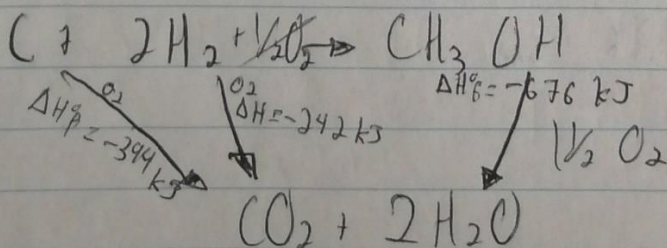 C + 2H₂ + ½O₂ → CH₃OH
O₂
ΔH°f = -394 kJ
O₂
ΔH = -242 kJ
ΔH°c = -676 kJ
1½ O₂
CO₂ + 2H₂O